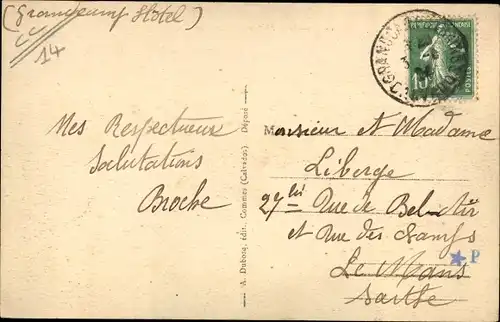 (Grandcamp Hotel)
14
10
POSTES
Mes Respectueux
Salutations
Broche
A. Dubosq, édit., Commes (Calvados). Déposé
Monsieur et Madame
Liberge
27 bis Rue de Bel-Air
et Rue des Champs
Le Mans
Sarthe
P